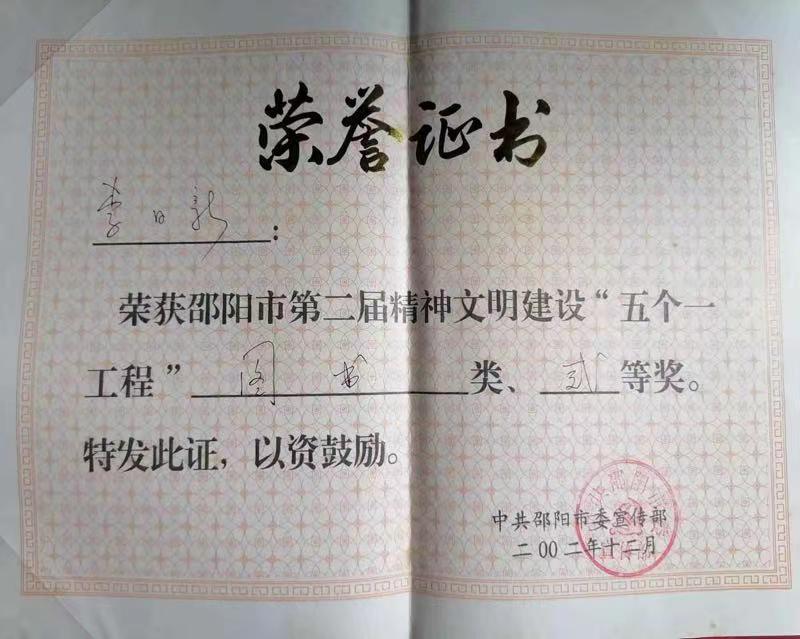 荣誉证书
李日新：
荣获邵阳市第二届精神文明建设“五个一
工程” 图书 类、 贰 等奖。
特发此证，以资鼓励。
中共邵阳市委宣传部
二00二年十二月